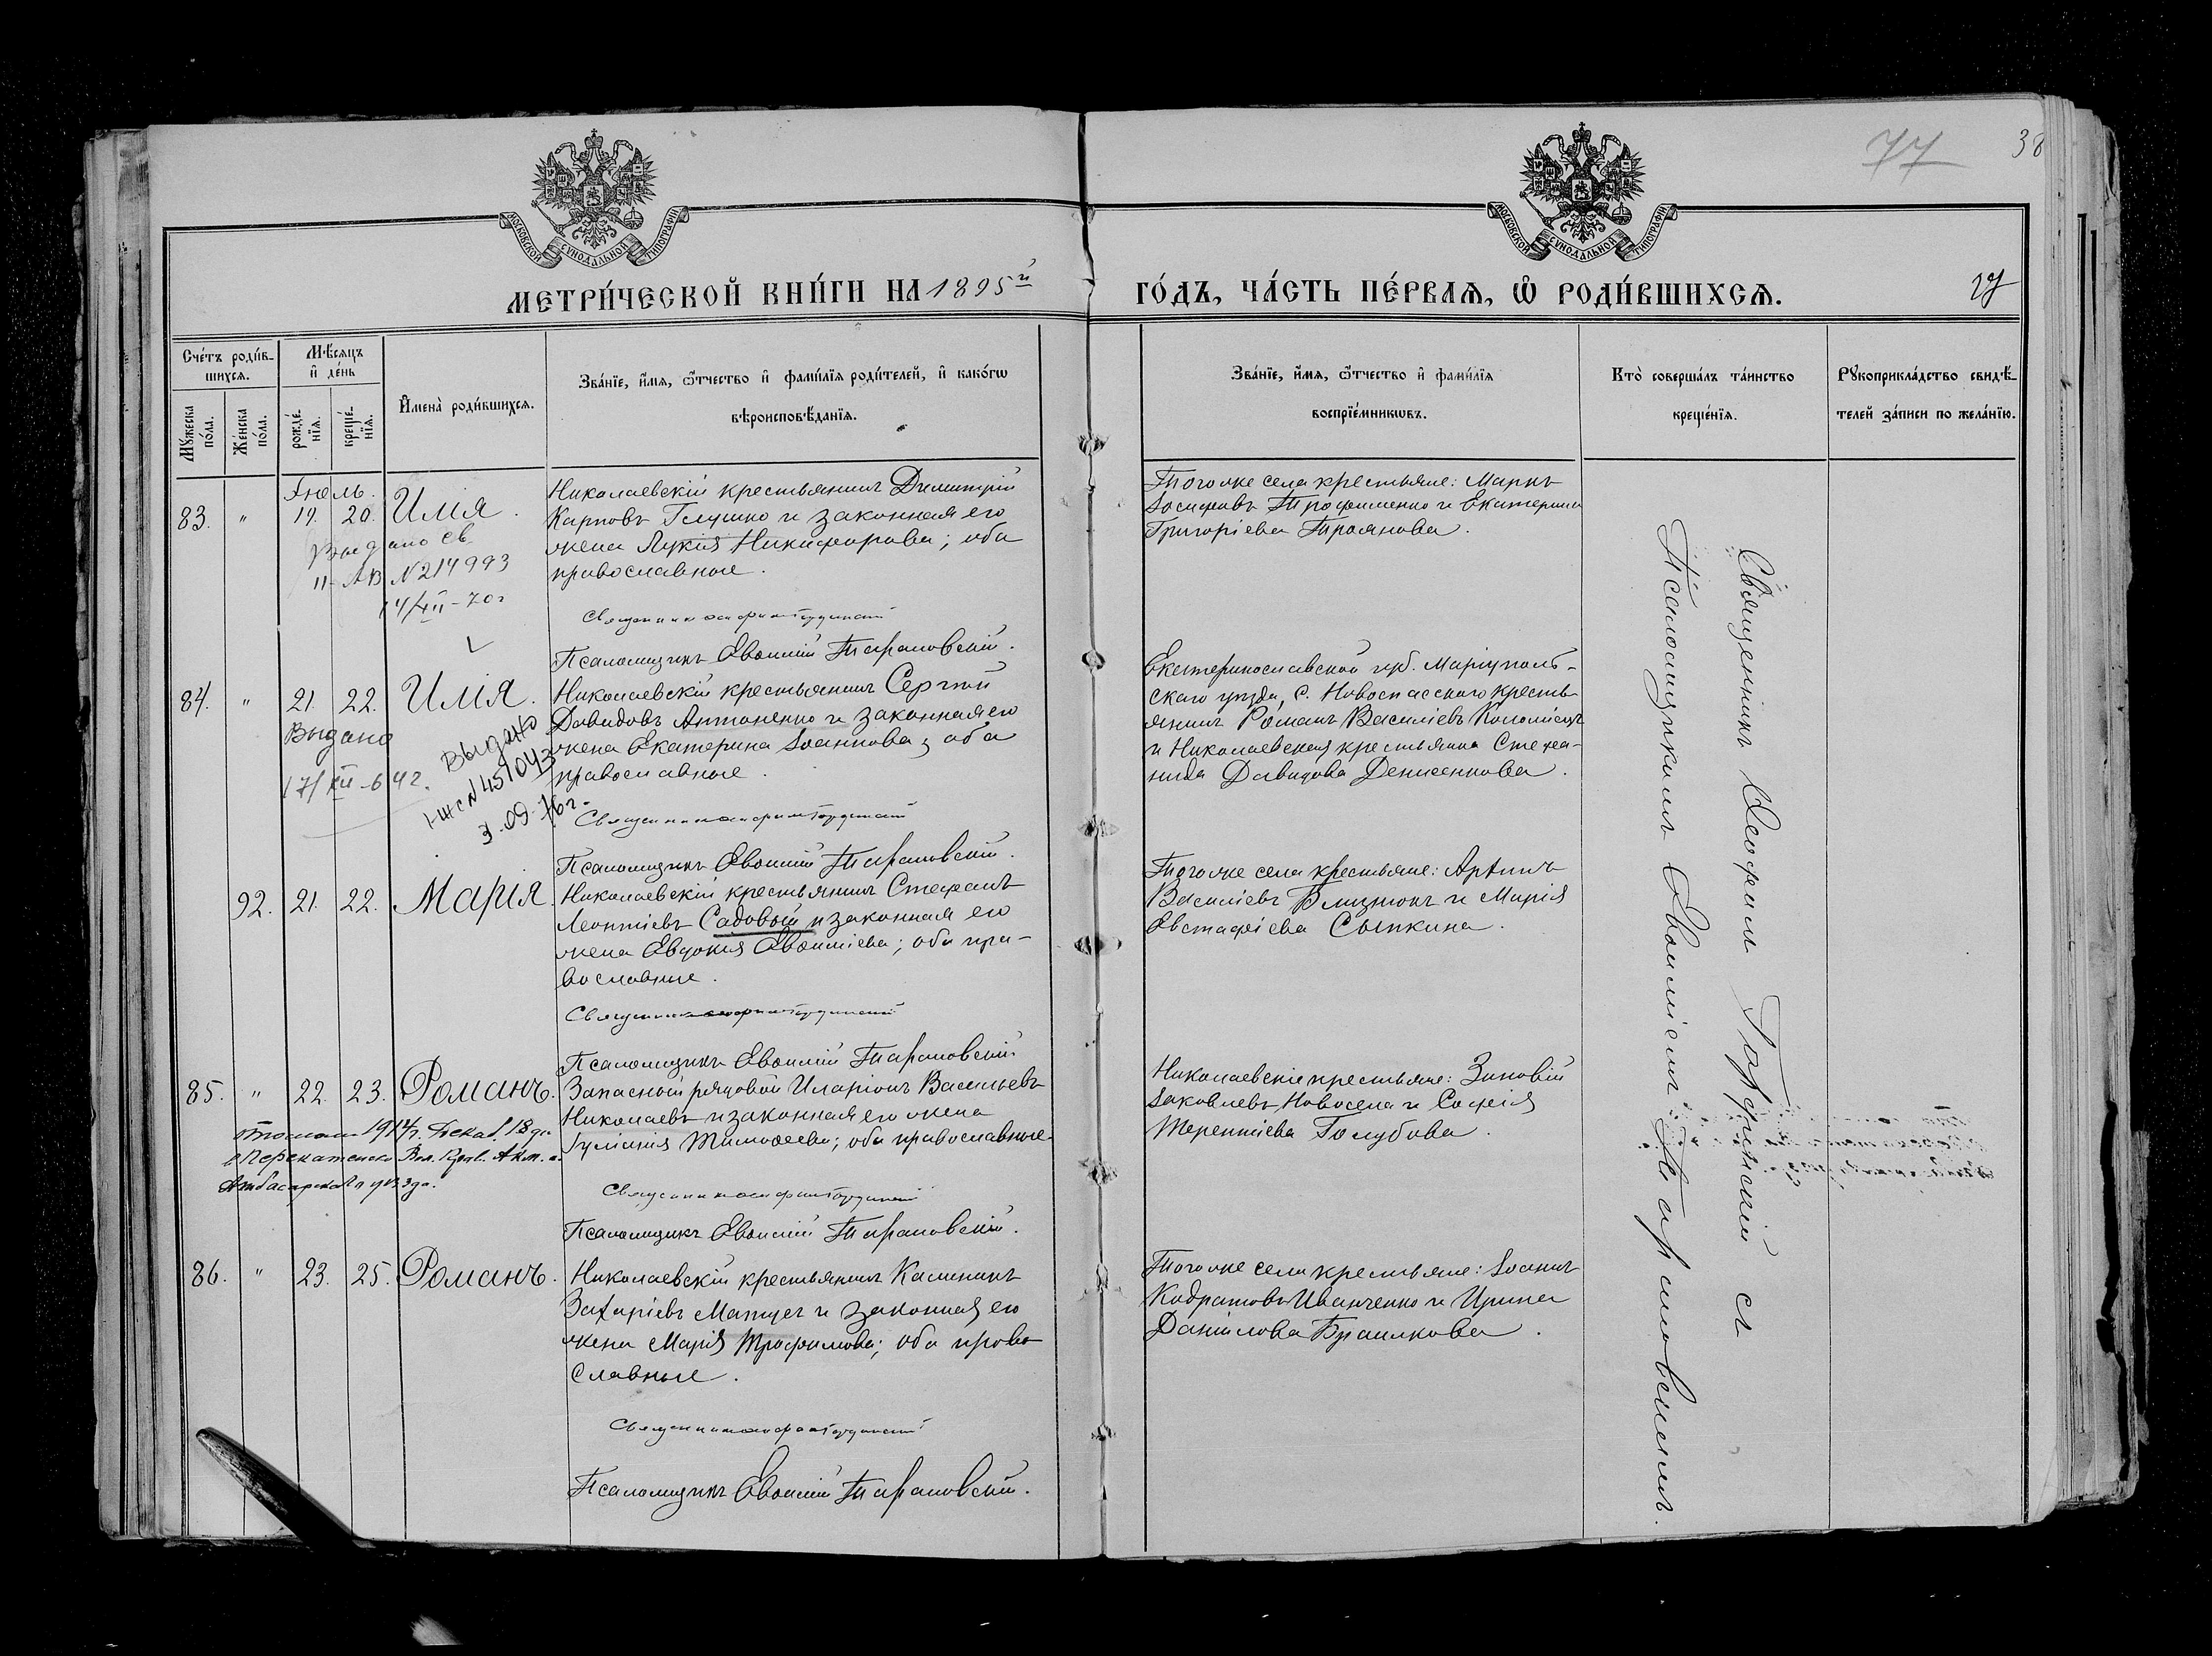 77
38
МОСКОВСКОЙ СУНОДАЛЬНОЙ ТИПОГРАФІИ
МОСКОВСКОЙ СУНОДАЛЬНОЙ ТИПОГРАФІИ
МЕТРИ́ЧЕСКОЙ КНИ́ГИ НА 1895й
ГО́ДЪ, ЧА́СТЬ ПЕ́РВАѦ, Ѽ РОДИ́ВШИХСѦ.
Сче́тъ роди́в-
шихсѧ.
Мѣ́сѧцъ
и҆ де́нь
Мꙋ́жеска
по́ла.
Же́нска
по́ла.
рожде́-
нїѧ.
креще́-
нїѧ.
И҆мена̀ роди́вшихсѧ.
Зва́нїе, и҆́мѧ, ѻ҆́тчество и҆ фами́лїѧ роди́телей, и҆ како́гѡ
вѣроисповѣ́данїѧ.
Зва́нїе, и҆́мѧ, ѻ҆́тчество и҆ фами́лїѧ
воспрїе́мникѡвъ.
Кто̀ соверша́лъ та́инство
креще́нїѧ.
Рꙋкоприкла́дство свидѣ́-
телей за́писи по жела́нїю.
Іюль.
83. " 19. 20. Илія.
Выдано св
II-АВ N214993
14/XII-70г
Николаевскій крестьянинъ Димитрій
Карповъ Глушко и законная его
жена Лукія Никифорова; оба
православные.
Священникъ
Псаломщикъ Евѳимій Тарановскій.
Тогоже села крестьяне: Маркъ
Іосифовъ Трофименко и Екатерина
Григоріева Троянова.
84. " 21. 22. Илія.
Выдано
17/XII-64г.
Выдано
N451043
3.09.76г.
Николаевскій крестьянинъ Сергій
Давидовъ Антоненко и законная его
жена Екатерина Іоаннова; оба
православные.
Священникъ
Псаломщикъ Евѳимій Тарановскій.
Екатеринославской губ. Маріуполь-
скаго уѣзда, с. Новоспасского кресть-
янинъ Романъ Василіевъ Коломіецъ
и Николаевская крестьянка Стефа-
нида Давидова Денисенкова.
92. 21. 22. Марія.
Николаевскій крестьянинъ Стефанъ
Леонтіевъ Садовый и законная его
жена Евдокія Евѳиміева; оба пра-
вославные.
Священникъ
Псаломщикъ Евѳимій Тарановскій.
Тогоже села крестьяне:
Василіевъ Близнюкъ и Марія
Евстафіева Сыпкина.
85. " 22. 23. Романъ.
1914г. Декаб. 18 дн
уѣзда.
Запасный рядовой Иларіонъ Васильевъ
Николаевъ и законная его жена
Іуліанія Тимоѳеева; оба православные.
Священникъ
Псаломщикъ Евѳимій Тарановскій.
Николаевскіе крестьяне: Зиновій
Іаковлевъ Новосела и Софія
Терентіева Голубова.
86. " 23. 25. Романъ.
Николаевскій крестьянинъ Калиникъ
Захаріевъ Мацуга и законная его
жена Марія Трофимова; оба право
славные.
Священникъ
Псаломщикъ Евѳимій Тарановскій.
Тогоже села крестьяне: Іоаннъ
Кодратовъ Иванченко и Ирина
Даніилова Браилкова.
Священникъ Ѳеофилъ съ
Псаломщикомъ Евѳиміемъ Тарановскимъ.